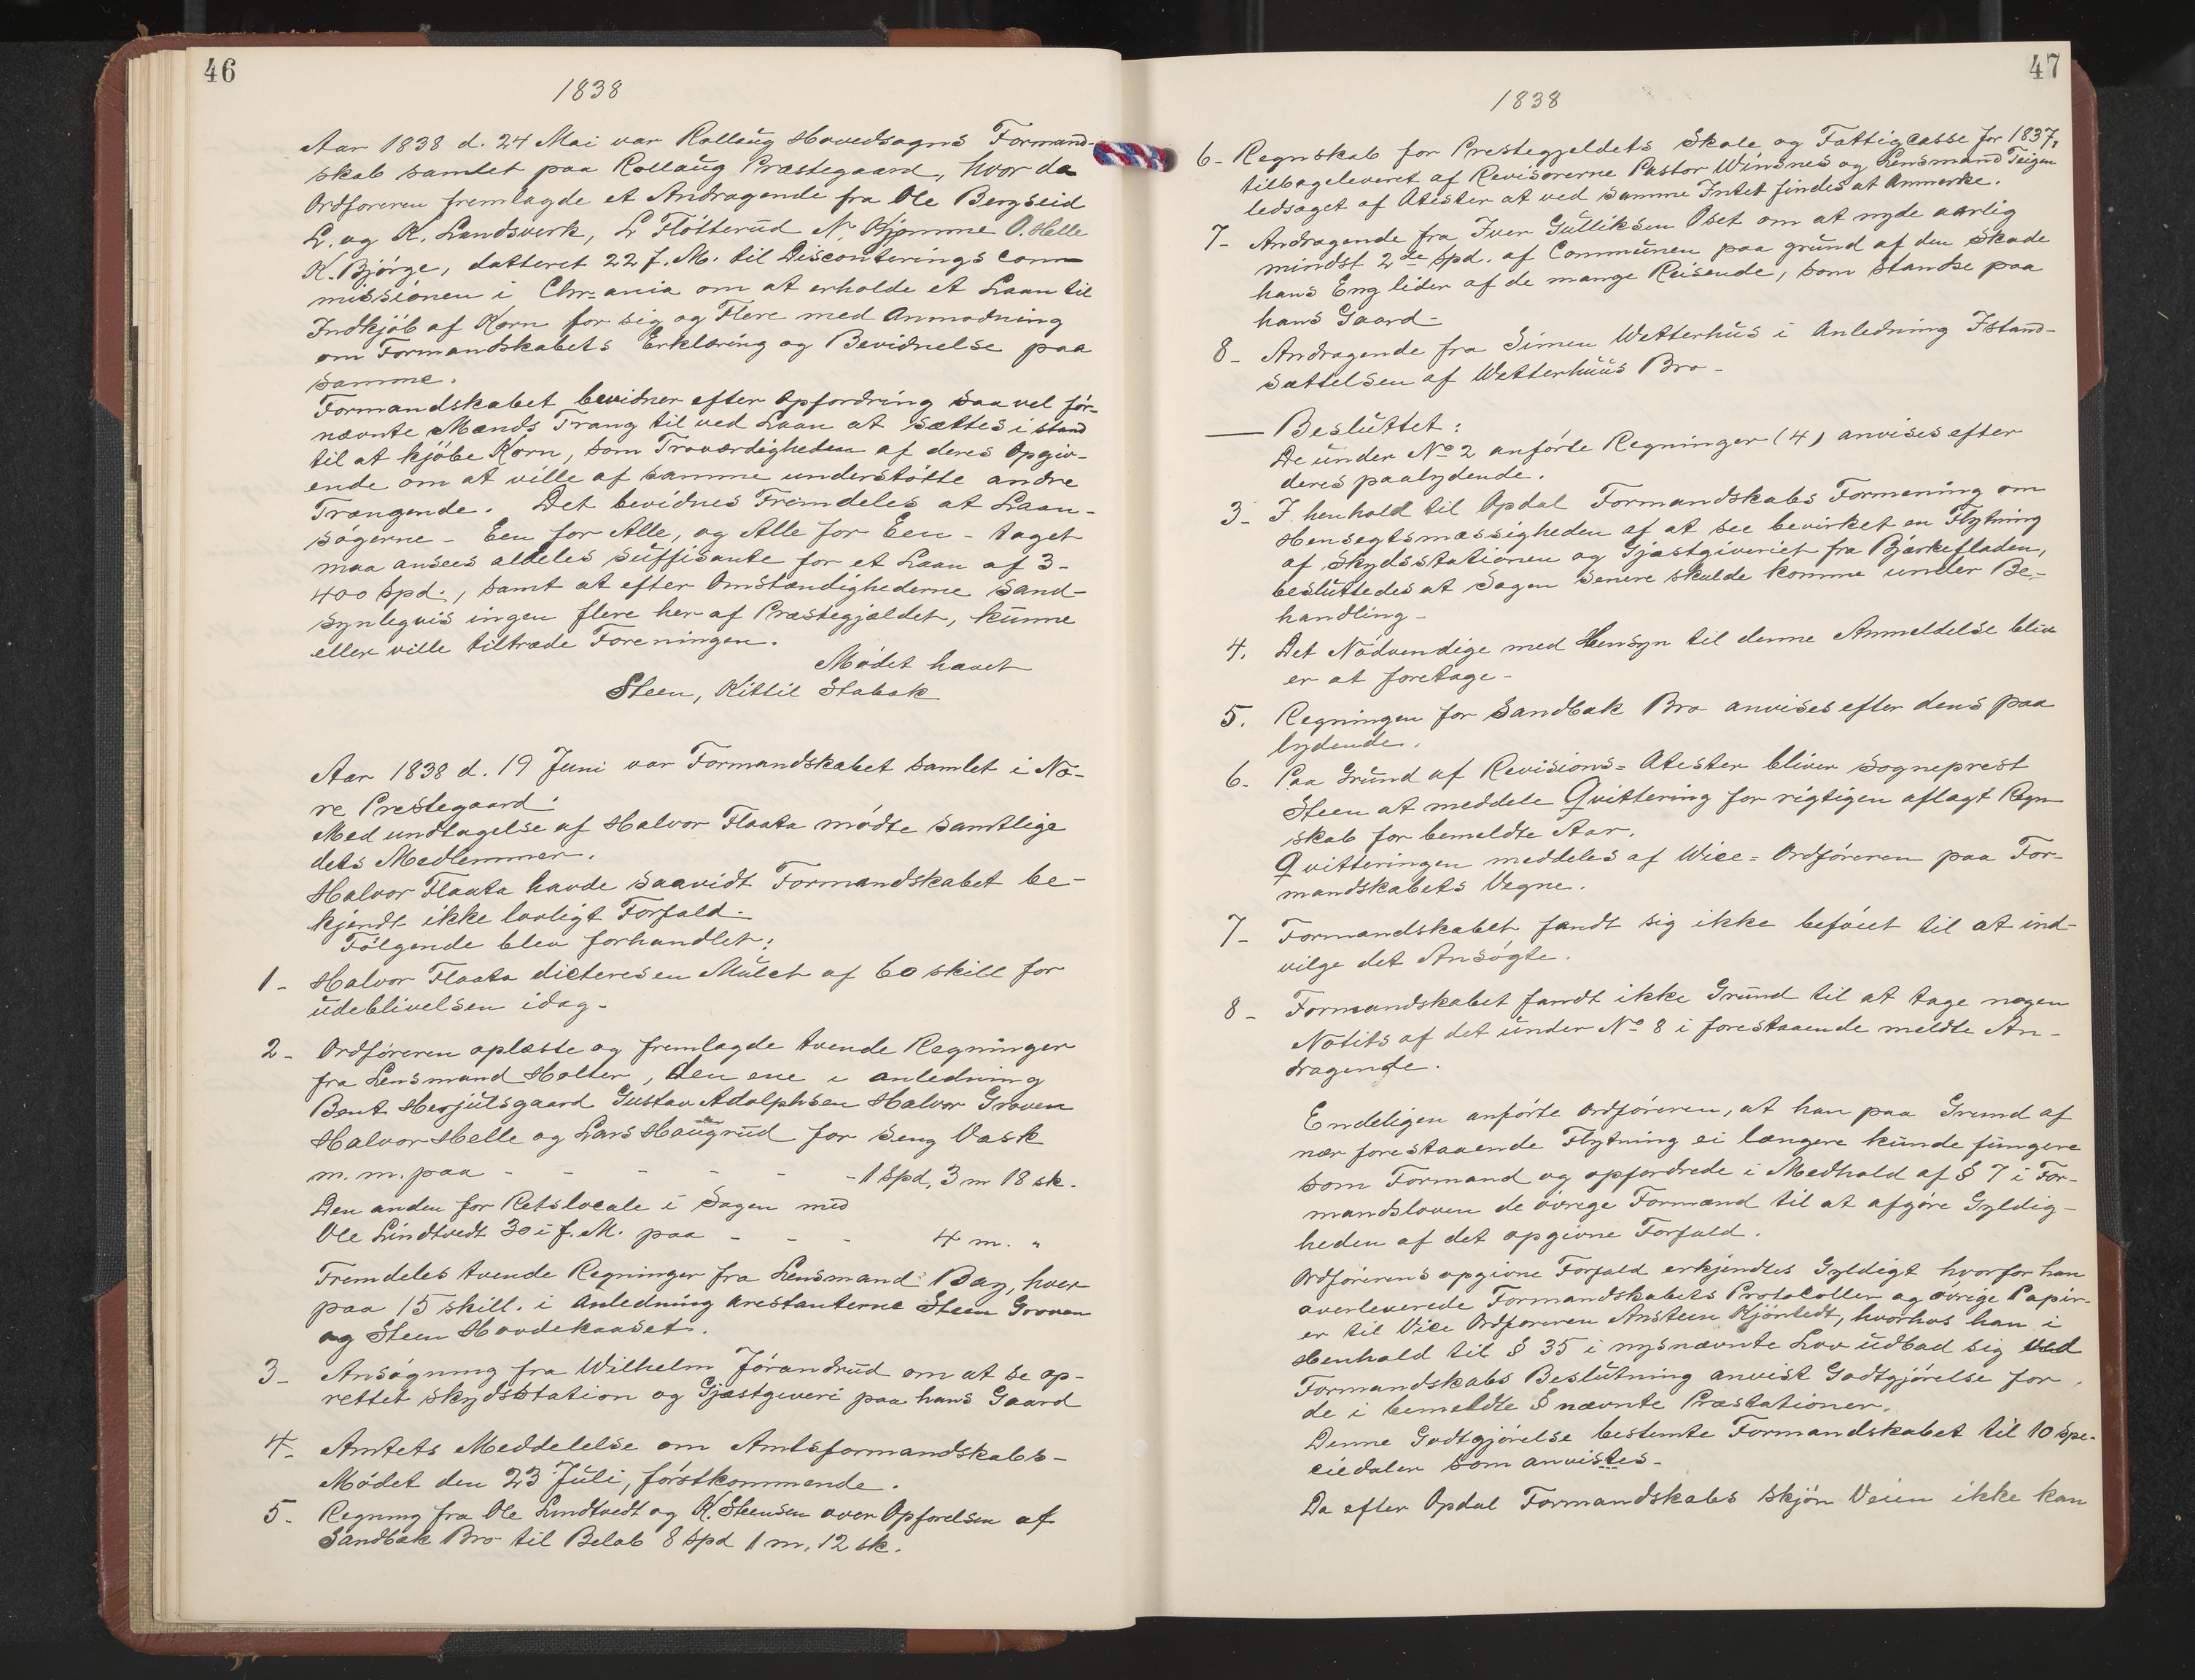 46
1838
Aar 1838 d. 24 Mai var Rollaug Hovedsogns Formand-
skab samlet paa Rollaug Præstegaard, hvor da
Ordføreren fremlagde et Andragende fra Ole Bergseid
L. og K. Landsverk, L Fløtterud N. Kjomme O. Helle
K. Bjørge, datteret 22 f. M. til Disconterings com
missionen i Chr=ania om at erholde et Laan til
Indkjøb af Korn for sig og Flere med Anmodning
om Formandskabets Erklæring og Bevidnelse paa
samme.
Formandskabet bevidner efter Opfordring saavel før-
nævnte Mænds Trang til ved Laan at sættes i stand
til at kjøbe Korn, som Troværdigheden af deres Opgiv-
ende om at ville af samme understøtte andre
Trængende. Det bevidnes Fremdeles at Laan-
søgerne - Een for Alle, og Alle for Een - taget
maa ansees aldeles suffisante for et Laan af 3-
400 Spd., samt at efter Omstændighederne sand-
synlegvis ingen flere her af Præstegjældet, kunne
eller ville tiltræde Foreningen.
Mødet hævet
Steen, Kittil Stabæk
Aar 1838 d. 19 Juni var Formandskabet samlet i No-
re Prestegaard.
Med undtagelse af Halvor Flaata mødte samtlige
dets Medlemmer.
Halvor Flaata havde saavidt Formandskabet be-
kjendt ikke lovligt Forfald.
Følgende blev forhandlet:
1- Halvor Flaata dicteres en Mulct af 60 skill for
udeblivelsen idag.
2- Ordføreren oplæste og fremlagde tvende Regninger
fra Lensmand Holter, den ene i anledning
Bent Herjulsgaard Gustav Adolphsen Halvor Groven
Halvor Helle og Lars Haugrud for Seng Vask
m. m. paa - - - - - - 1 Spd, 3 m 18 sk.
Den anden for Retslocale i Sagen mod
Ole Lindtvedt 30 i f. M. paa - - - 4 m. "
Fremdeles tvende Regninger fra Lensmand Bay, hver
paa 15 skill. i Anledning arestanterne Steen Groven
og Steen Hovdekaaset.
3- Ansøgning fra Wilhelm Jørandrud om at se op-
rettet skydsstation og Gjæstgiveri paa hans Gaard
4- Amtets Meddelelse om Amtsformandskabs-
Mødet den 23 Juli, førstkommende.
5- Regning fra Ole Lundtvedt og K. Steensen over Opførelsen af
Sandbæk Bro til Beløb 8 Spd 1 m. 12 sk.
47
1838
6- Regnskab for Prestegjeldets Skole og Fattigcasse for 1837,
tilbageleveret af Revisorerne Pastor Winsnes og Lensmand Teigen
ledsaget af Atester at ved samme Intet findes at Anmerke.
7- Andragende fra Iver Gulliksen Øset om at nyde aarlig
mindst 2de Spd. af Communen paa grund af den Skade
hans Eng lider af de mange Reisende, som standse paa
hans Gaard-
8- Andragende fra Simen Wetterhus i Anledning Istand-
sættelsen af Wetterhuus Bro-
Besluttet:
De under No 2 anførte Regninger (4) anvises efter
deres paalydende.
3- I henhold til Opdal Formandskabs Formening om
Hensegtsmæssigheden af at see bevirket en Flytning
af Skydsstationen og Gjæstgiveriet fra Bjørkefladen,
besluttedes at Sagen senere skulde komme under Be-
handling-
4. Det Nødvendige med Hensyn til denne Anmeldelse bliv
er at foretage-
5. Regningen for Sandbæk Bro anvises efter dens paa
lydende.
6- Paa Grund af Revisions= Atester bliver Sogneprest
Steen at meddele Qvittering for rigtigen aflagt Regn
skab for bemeldte Aar.
Qvitteringen meddeles af Vice= Ordføreren paa For-
mandskabets Vegne.
7- Formandskabet fandt sig ikke beføiet til at ind-
vilge det Ansøgte.
8- Formandskabet fandt ikke Grund til at tage nogen
Notits af det under No 8 i forestaaende meldte An-
dragende.
Endeligen anførte Ordføreren, at han paa Grund af
nær forestaaende Flytning ei længere kunde fungere
som Formand og opfordrede i Medhold af § 7 i For-
mandsloven de øvrige Formænd til at afgøre Gyldig-
heden af det opgivne Forfald.
Ordførerens opgivne Forfald erkjendtes Gyldigt hvorfor han
overleverede Formandskabets Protocoller og øvrige Papir-
er til Vice Ordføreren Ansteen Kjøntedt, hvorhos han i
Henhold til § 35 i nysnævnte Lov udbad sig ved
Formandskabs Beslutning anvist Godtgjørelse for
de i bemeldte § nævnte Præstationer.
Denne Godtgjørelse bestemte Formandskabet til 10 Spe-
ciedaler som anvistes-
Da efter Opdal Formandskabs Skjøn Veien ikke kan